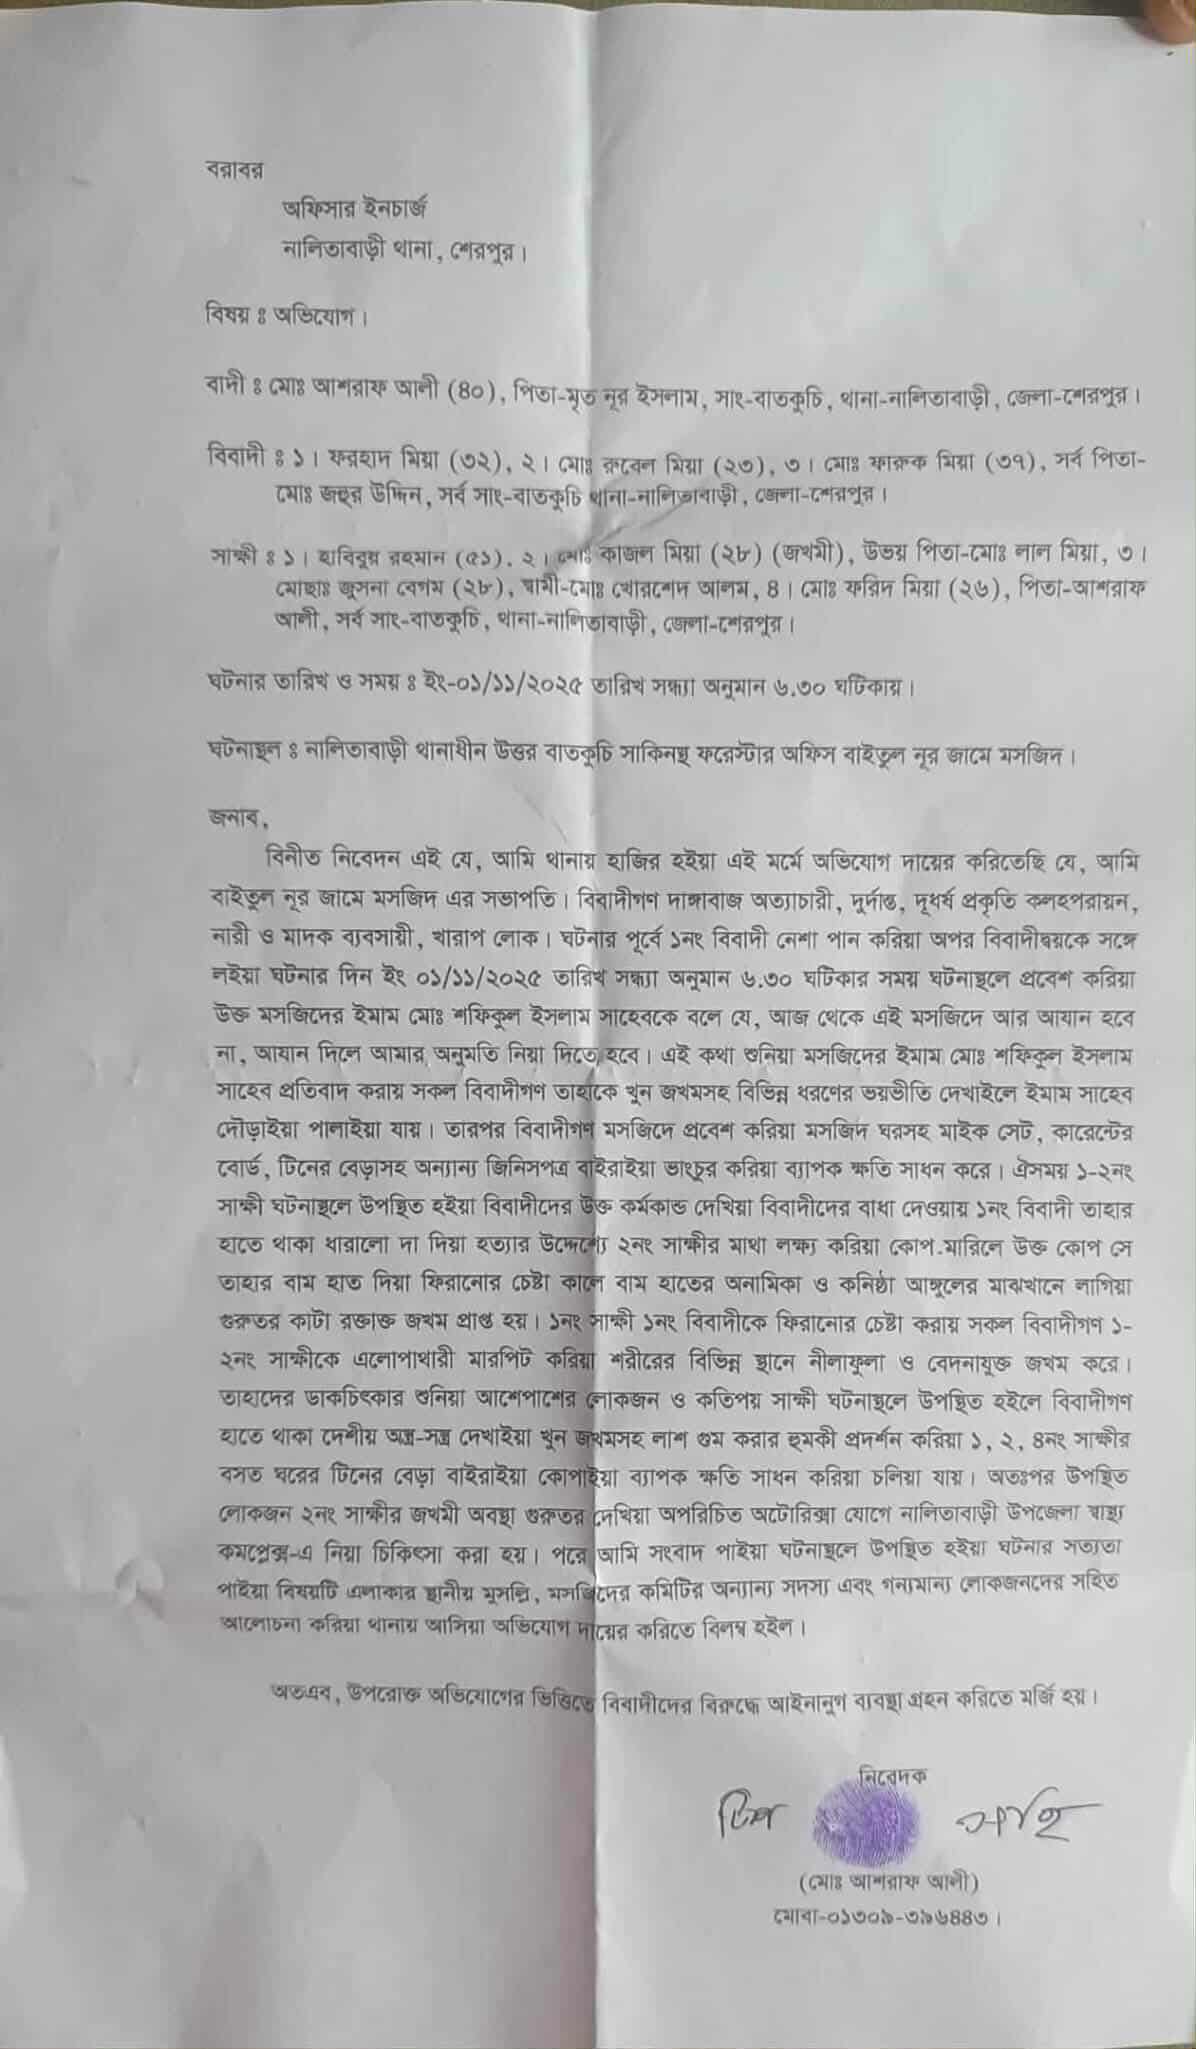 বরাবর
অফিসার ইনচার্জ
নালিতাবাড়ী থানা, শেরপুর।
বিষয় ঃ অভিযোগ।
বাদী ঃ মোঃ আশরাফ আলী (৪০), পিতা-মৃত নূর ইসলাম, সাং-বাতকুচি, থানা-নালিতাবাড়ী, জেলা-শেরপুর।
বিবাদী ঃ ১। ফরহাদ মিয়া (৩২), ২। মোঃ রুবেল মিয়া (২৩), ৩। মোঃ ফারুক মিয়া (৩৭), সর্ব পিতা-
মোঃ জহুর উদ্দিন, সর্ব সাং-বাতকুচি থানা-নালিতাবাড়ী, জেলা-শেরপুর।
সাক্ষী ঃ ১। হাবিবুয় রহমান (৫১), ২। মোঃ কাজল মিয়া (২৮) (জখমী), উভয় পিতা-মোঃ লাল মিয়া, ৩।
মোছাঃ জুসনা বেগম (২৮), স্বামী-মোঃ খোরশেদ আলম, ৪। মোঃ ফরিদ মিয়া (২৬), পিতা-আশরাফ
আলী, সর্ব সাং-বাতকুচি, থানা-নালিতাবাড়ী, জেলা-শেরপুর।
ঘটনার তারিখ ও সময় ঃ ইং-০১/১১/২০২৫ তারিখ সন্ধ্যা অনুমান ৬.৩০ ঘটিকায়।
ঘটনাস্থল ঃ নালিতাবাড়ী থানাধীন উত্তর বাতকুচি সাকিনস্থ ফরেস্টার অফিস বাইতুল নূর জামে মসজিদ।
জনাব,
বিনীত নিবেদন এই যে, আমি থানায় হাজির হইয়া এই মর্মে অভিযোগ দায়ের করিতেছি যে, আমি
বাইতুল নূর জামে মসজিদ এর সভাপতি। বিবাদীগণ দাঙ্গাবাজ অত্যাচারী, দুর্দান্ত, দূধর্ষ প্রকৃতি কলহপরায়ন,
নারী ও মাদক ব্যবসায়ী, খারাপ লোক। ঘটনার পূর্বে ১নং বিবাদী নেশা পান করিয়া অপর বিবাদীদ্বয়কে সঙ্গে
লইয়া ঘটনার দিন ইং ০১/১১/২০২৫ তারিখ সন্ধ্যা অনুমান ৬.৩০ ঘটিকার সময় ঘটনাস্থলে প্রবেশ করিয়া
উক্ত মসজিদের ইমাম মোঃ শফিকুল ইসলাম সাহেবকে বলে যে, আজ থেকে এই মসজিদে আর আযান হবে
না, আযান দিলে আমার অনুমতি নিয়া দিতে হবে। এই কথা শুনিয়া মসজিদের ইমাম মোঃ শফিকুল ইসলাম
সাহেব প্রতিবাদ করায় সকল বিবাদীগণ তাহাকে খুন জখমসহ বিভিন্ন ধরণের ভয়ভীতি দেখাইলে ইমাম সাহেব
দৌড়াইয়া পালাইয়া যায়। তারপর বিবাদীগণ মসজিদে প্রবেশ করিয়া মসজিদ ঘরসহ মাইক সেট, কারেন্টের
বোর্ড, টিনের বেড়াসহ অন্যান্য জিনিসপত্র বাইরাইয়া ভাংচুর করিয়া ব্যাপক ক্ষতি সাধন করে। ঐসময় ১-২নং
সাক্ষী ঘটনাস্থলে উপস্থিত হইয়া বিবাদীদের উক্ত কর্মকান্ড দেখিয়া বিবাদীদের বাধা দেওয়ায় ১নং বিবাদী তাহার
হাতে থাকা ধারালো দা দিয়া হত্যার উদ্দেশ্যে ২নং সাক্ষীর মাথা লক্ষ্য করিয়া কোপ মারিলে উক্ত কোপ সে
তাহার বাম হাত দিয়া ফিরানোর চেষ্টা কালে বাম হাতের অনামিকা ও কনিষ্ঠা আঙ্গুলের মাঝখানে লাগিয়া
গুরুতর কাটা রক্তাক্ত জখম প্রাপ্ত হয়। ১নং সাক্ষী ১নং বিবাদীকে ফিরানোর চেষ্টা করায় সকল বিবাদীগণ ১-
২নং সাক্ষীকে এলোপাথারী মারপিট করিয়া শরীরের বিভিন্ন স্থানে নীলাফুলা ও বেদনাযুক্ত জখম করে।
তাহাদের ডাকচিৎকার শুনিয়া আশেপাশের লোকজন ও কতিপয় সাক্ষী ঘটনাস্থলে উপস্থিত হইলে বিবাদীগণ
হাতে থাকা দেশীয় অস্ত্র-সস্ত্র দেখাইয়া খুন জখমসহ লাশ গুম করার হুমকী প্রদর্শন করিয়া ১, ২, ৪নং সাক্ষীর
বসত ঘরের টিনের বেড়া বাইরাইয়া কোপাইয়া ব্যাপক ক্ষতি সাধন করিয়া চলিয়া যায়। অতঃপর উপস্থিত
লোকজন ২নং সাক্ষীর জখমী অবস্থা গুরুতর দেখিয়া অপরিচিত অটোরিক্সা যোগে নালিতাবাড়ী উপজেলা স্বাস্থ্য
কমপ্লেক্স-এ নিয়া চিকিৎসা করা হয়। পরে আমি সংবাদ পাইয়া ঘটনাস্থলে উপস্থিত হইয়া ঘটনার সত্যতা
পাইয়া বিষয়টি এলাকার স্থানীয় মুসল্লি, মসজিদের কমিটির অন্যান্য সদস্য এবং গন্যমান্য লোকজনদের সহিত
আলোচনা করিয়া থানায় আসিয়া অভিযোগ দায়ের করিতে বিলম্ব হইল।
অতএব, উপরোক্ত অভিযোগের ভিত্তিতে বিবাদীদের বিরুদ্ধে আইনানুগ ব্যবস্থা গ্রহন করিতে মর্জি হয়।
নিবেদক
টিপ সহি
(মোঃ আশরাফ আলী)
মোবা-০১৩০৯-৩৯৬৪৪৩।